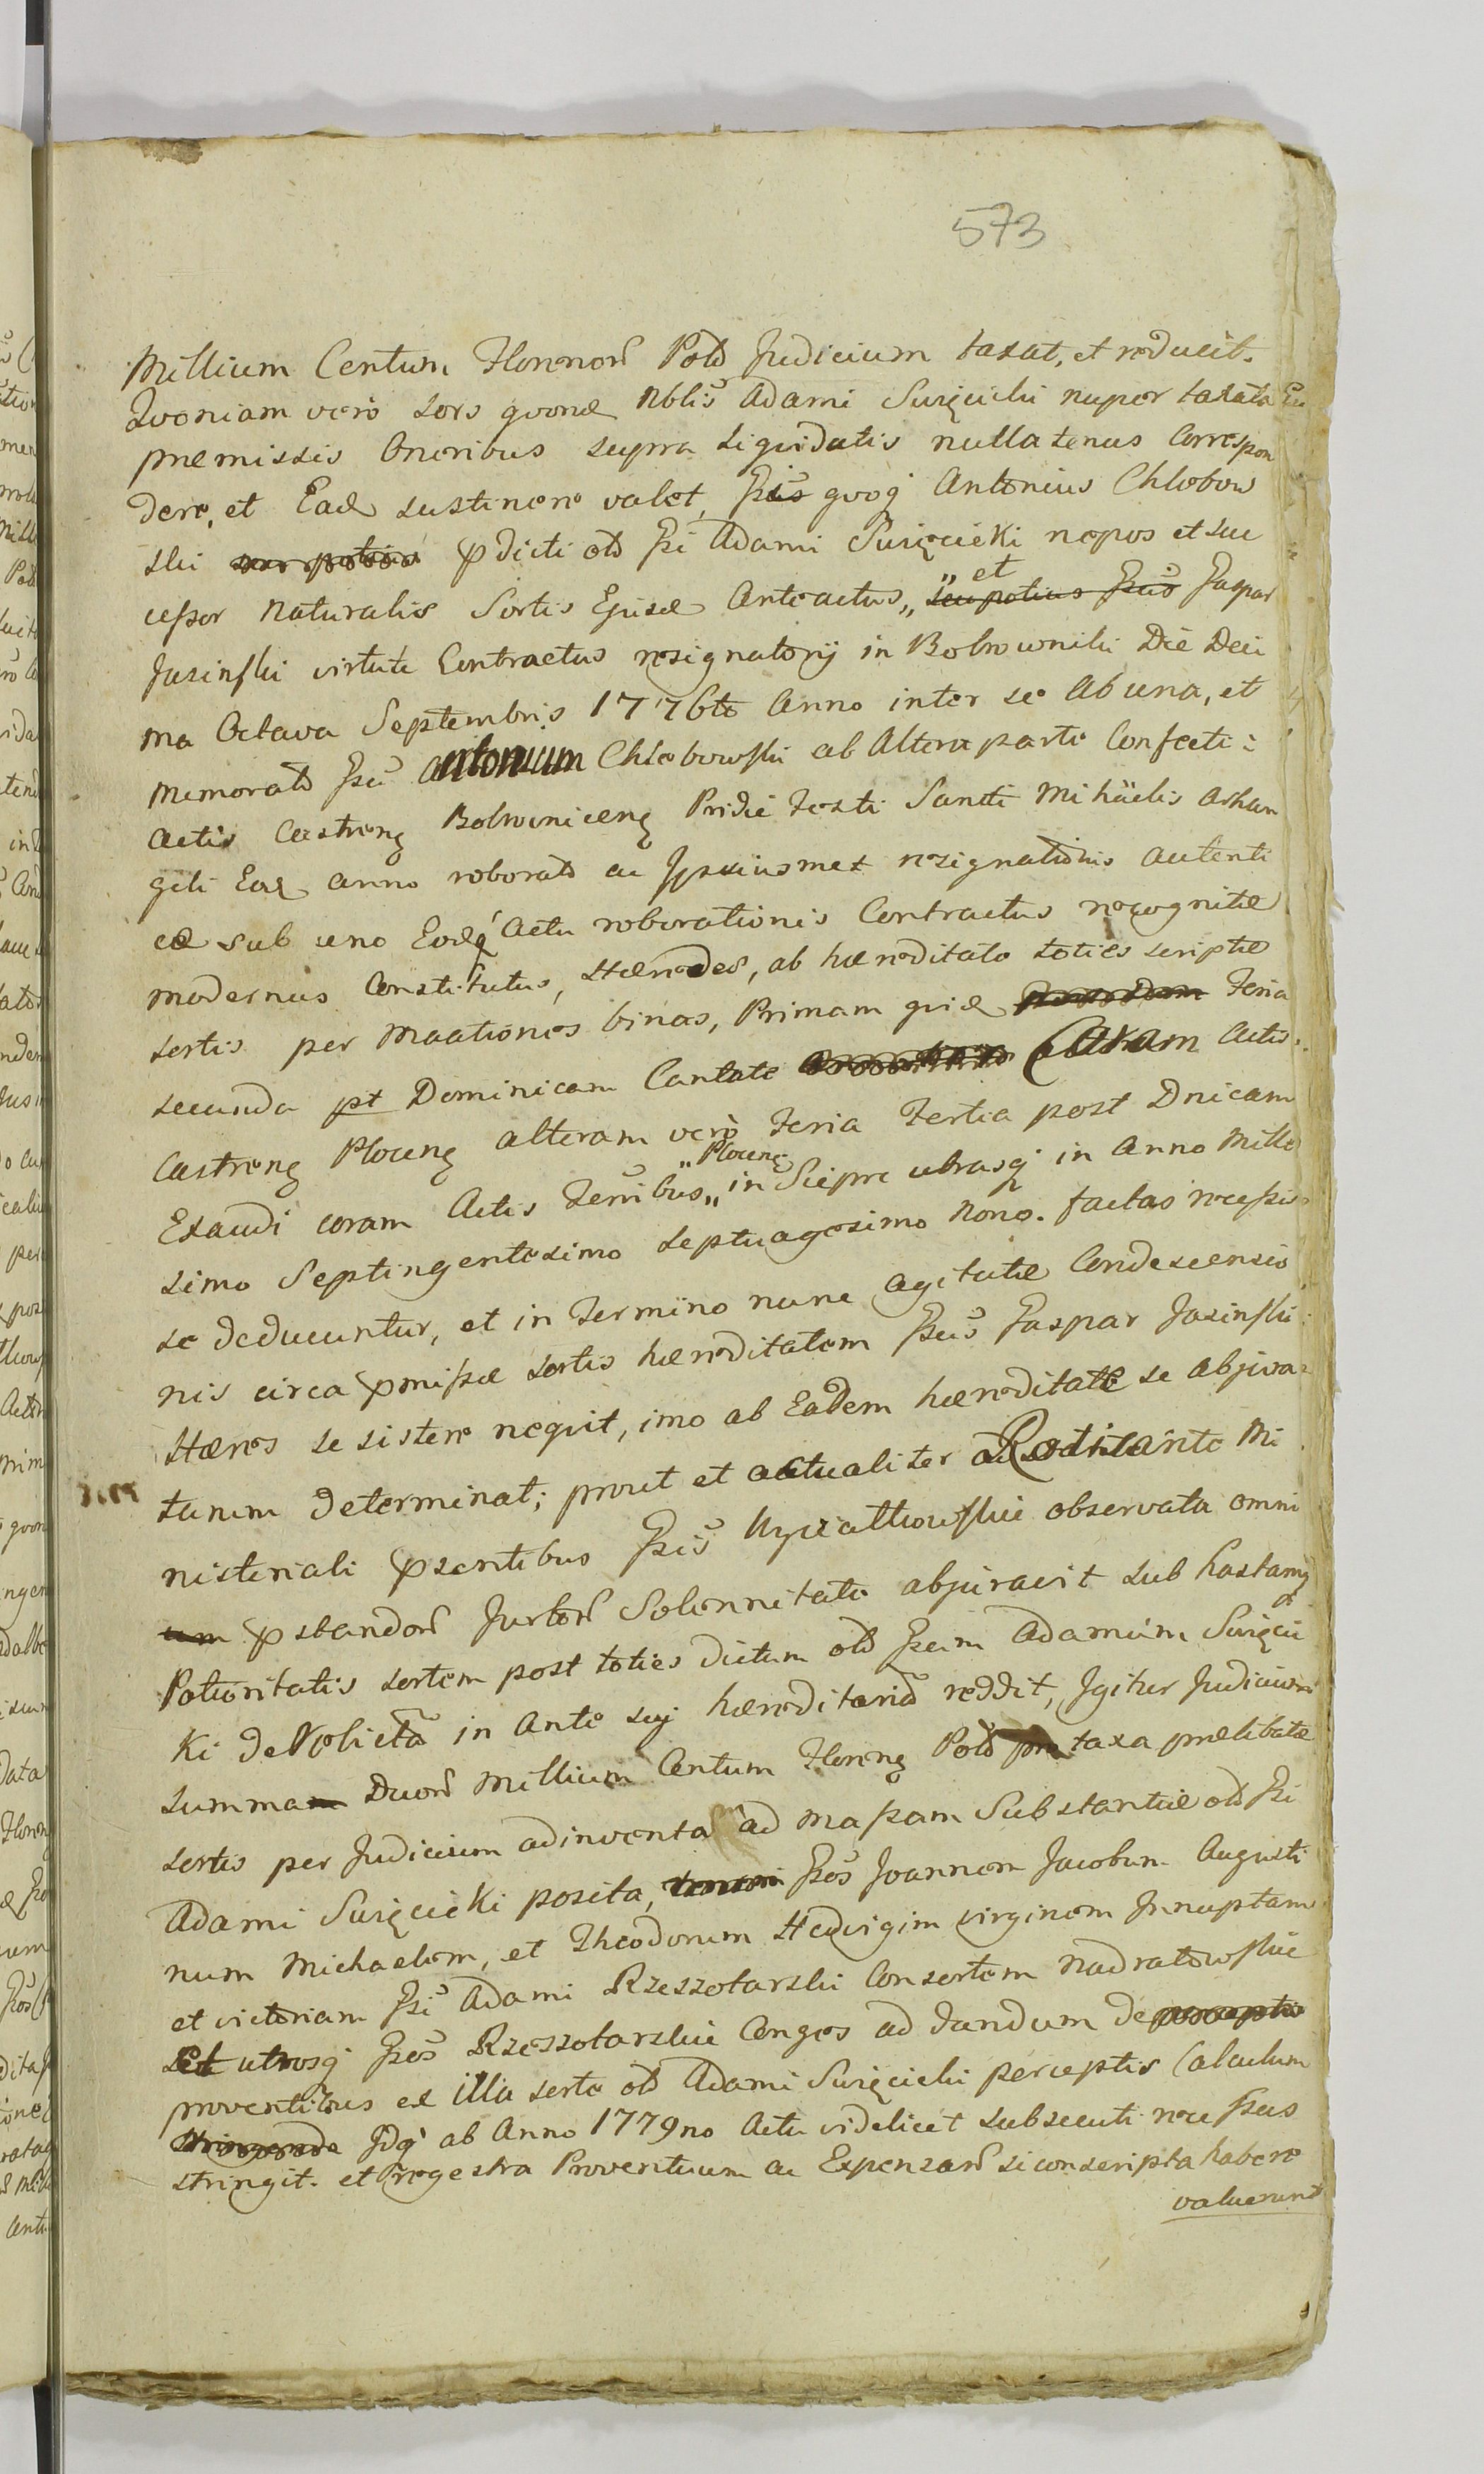 573
Millium Centum Florenor Pold Judicium taxat, et reducit.
Qvoniam vero sors qvond Nblis Adami Suręcicki nuper taxata
premissis Oneribus supra liqvidatis nullatenus Correspon
dere, et Ead sustinere valet, qvoq Antonius Chlebow
ski pdicti Adami Suręcicki nepos et suc
cessor Naturalis Sortis Ejusd Anteactus „ et seu potius Gaspar
Jasinski virtute Contractus resignatorij in Bobrowniki Die Deci
ma Octava Septembris 1776to Anno inter se ab una, et
memorat Antonium Chlebowski ab Altera parte Confecti:
Actis Castreng Bobrowniceng Pridie Festi Sancti Mihäelis Arhan
geli Eod anno roborato ac Ipsiusmet resignationis autenti
cæ sub uno Eodq Actu roborationis Contractus recognitæ
modernus Constitutus, Hæredes, ab hæreditate toties scriptæ
sortis per Maationes binas, Primam qvid Feria
secunda pt Dominicam Cantate Coram Actis
Castreng Ploceng alteram vero Feria Tertia post Dnicam
Exaudi coram Actis Terribus „Ploceng„ in Siepre utrasq in Anno Mille
simo Septingentesimo Septuagesimo Nono. factas recessis
se deducuntur, et in Termino nunc agitatæ Condescensio
nis circa pmissæ sortis hæreditatem Gaspar Jasinski
Hæres se sistere neqvit, imo ab Eadem hæreditate se abjura
turum determinat; prout et actualiter Mi
nisteriali psentibus observata omni
um pstandor Solennitate abjuravit sub hastamq
Potioritatis sortem post toties dictum Adamum Suręcic
ki in Ante hæreditaria reddit, Igitur Judicium
summam Duor Millium Centum Floreng Pold taxa prælibatæ
sortis per Judicium adinventa ad massam Substantiæ
Adami Suręcicki posita, Joannem Jacobum Augusti
num Michaelem, et Theodorum Hedvigim virginem Innuptam
et victoriam Adami Rzeszotarski Consortem Nadratowskie
Et utrosq Rzeszotarskie Conges ad dandum de perceptis
proventibus ex illa sorte Adami Suręcicki perceptis Calculum
Idq ab Anno 1779no Actu videlicet subsecuti recessus
stringit. et regestra Proventuum ac Expensar si conscripta habere
valuerunt